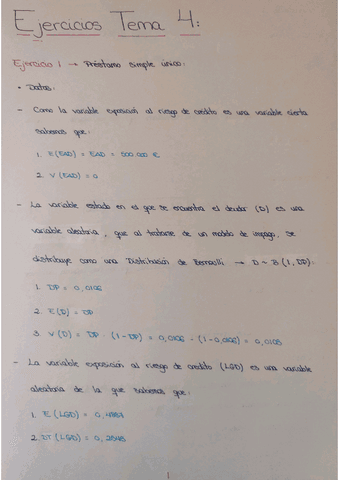 Ejercicios Tema 4:
Ejercicio 1 → Préstamo simple único:
• Datos:
- Como la variable exposición al riesgo de crédito es una variable cierta
sabemos que:
1. E(EAD) = EAD = 500.000 €
2. V(EAD) = 0
- La variable estado en el que se encuentra el deudor (D) es una
variable aleatoria, que al tratarse de un modelo de impago, se
distribuye como una Distribución de Bernoulli → D ~ B(1, DP):
1. DP =
2. E(D) = DP
3. V(D) = DP · (1 - DP) =
- La variable exposición al riesgo de crédito (LGD) es una variable
aleatoria de la que sabemos que:
1. E(LGD) =
2. DT(LGD) =
1